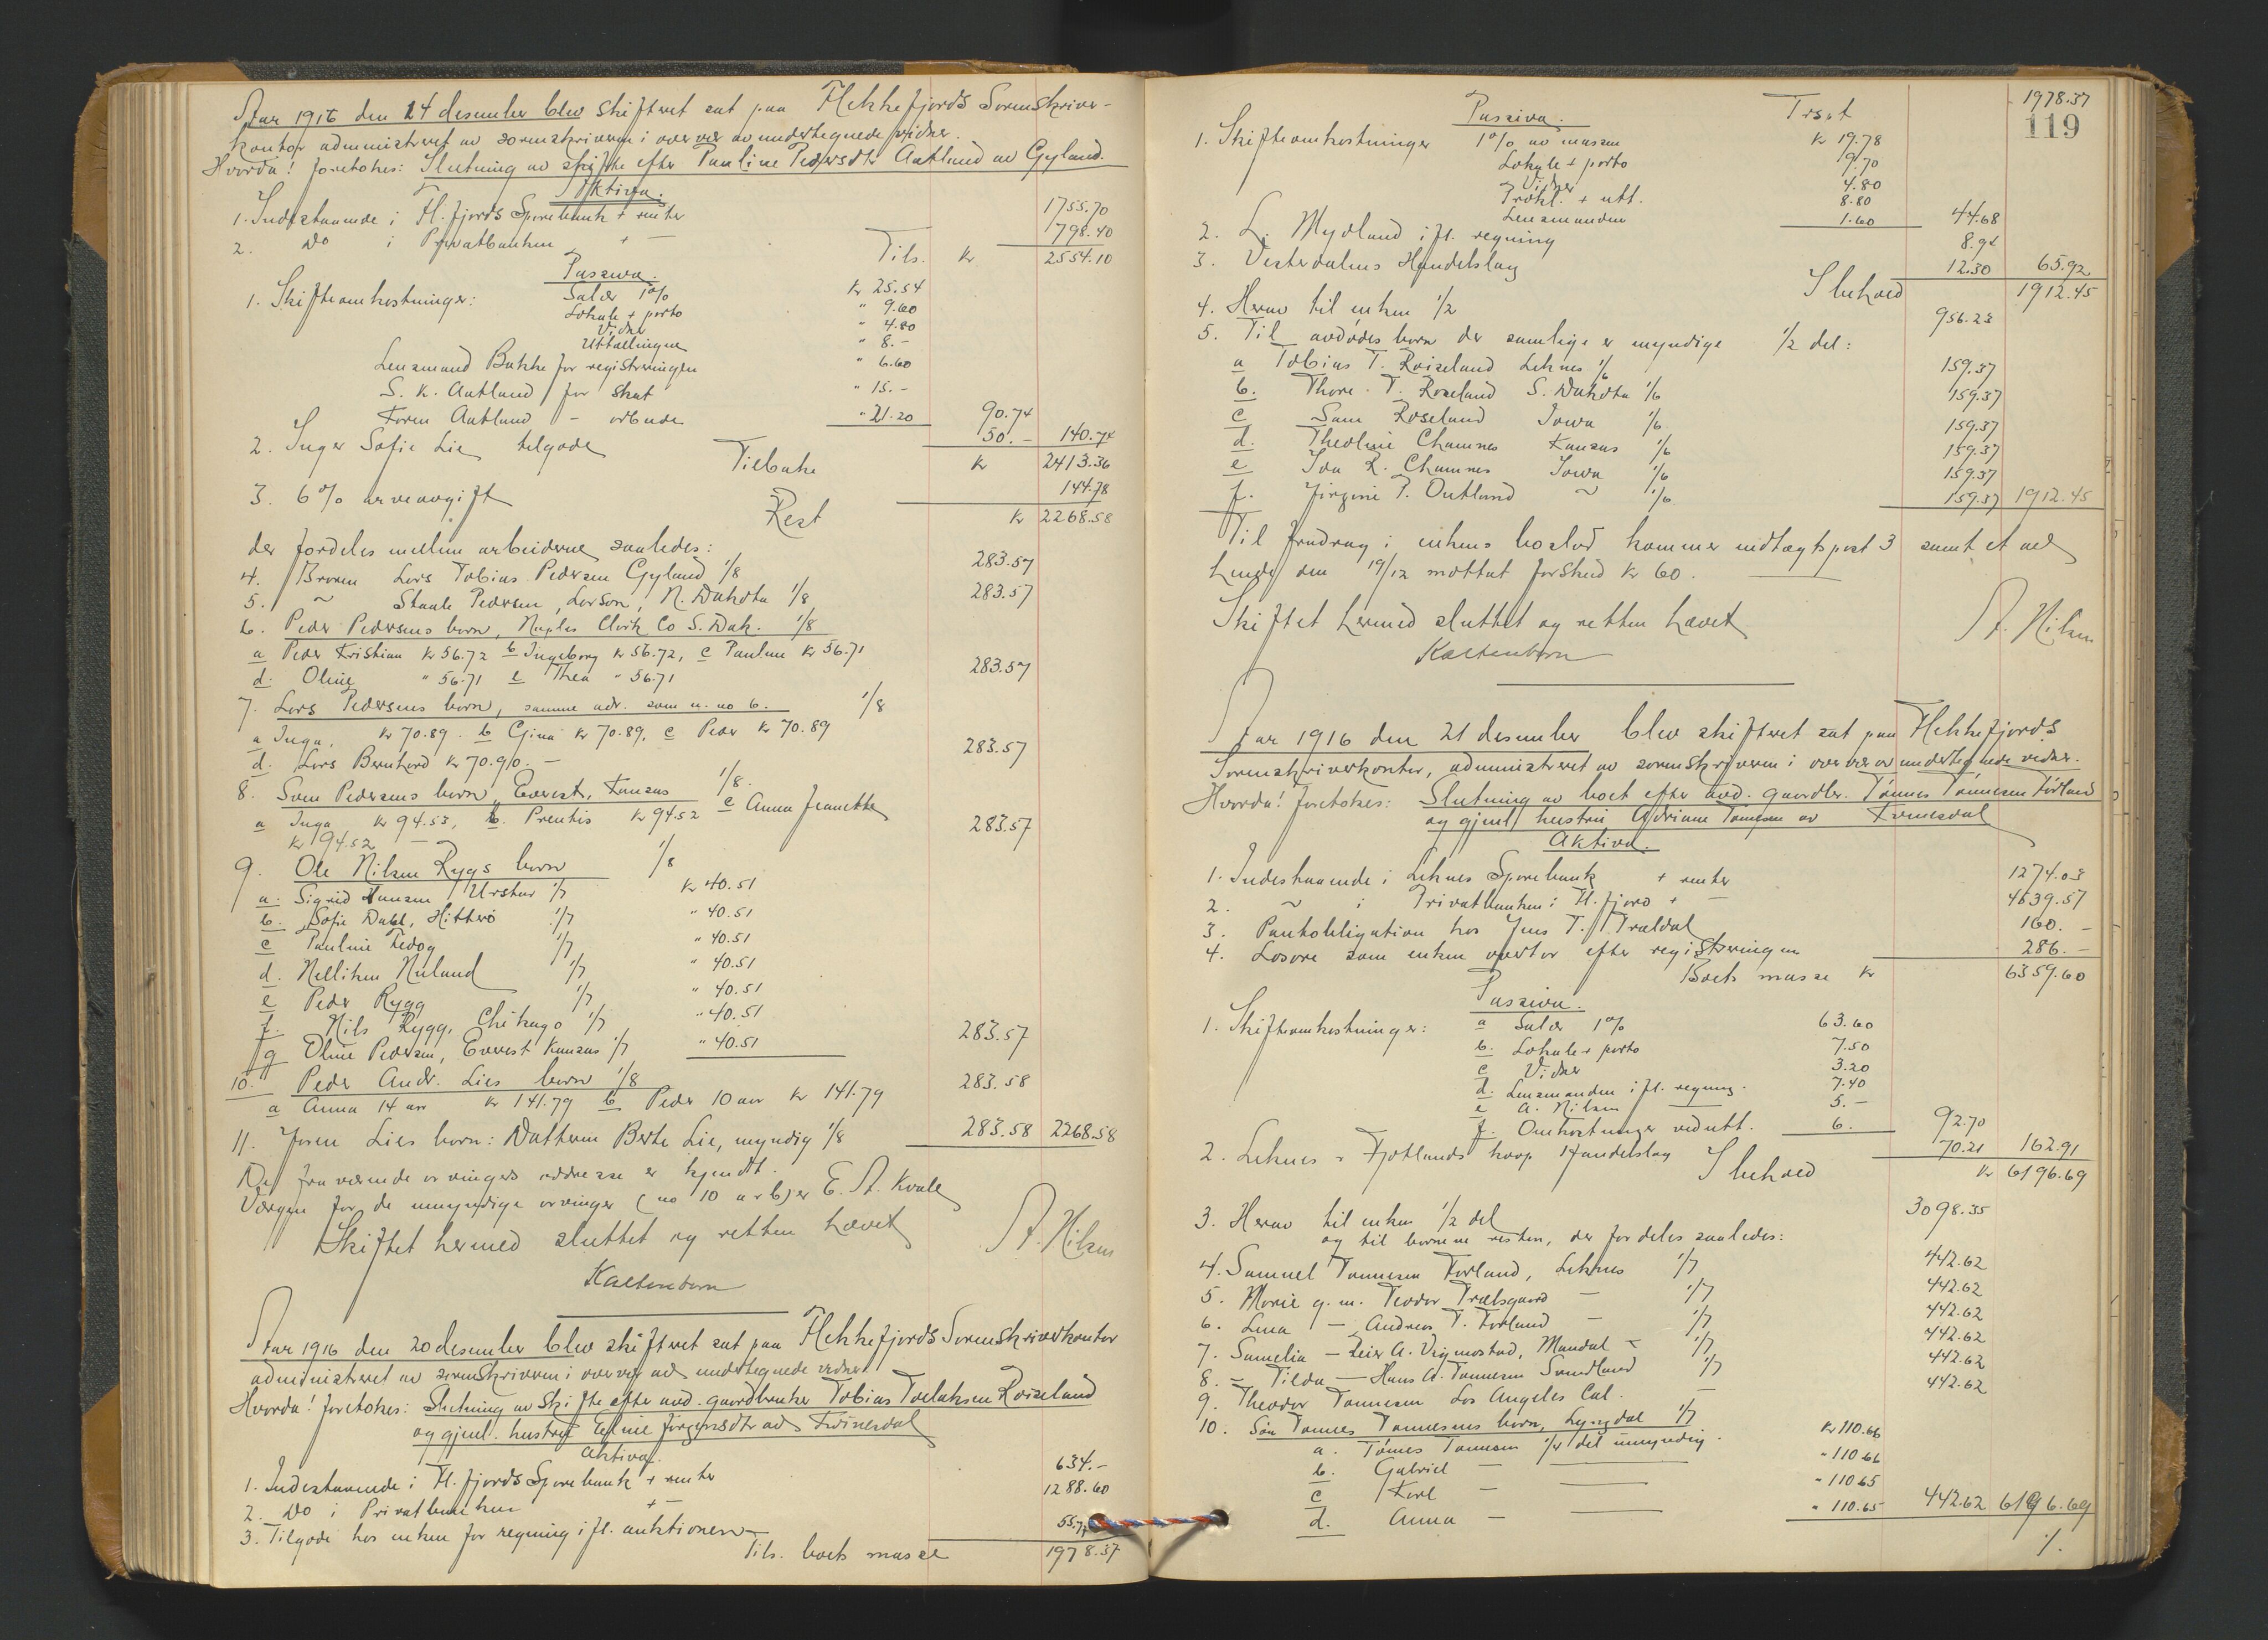 Aar 1916 den 14 desember blev skifteret sat paa Flekkefjords Sorenskriver-
kontor administreret av sorenskriveren i overvær av undertegnede vidner.
Hvorda! foretokes: Slutning av skifte efter Pauline Pedersdtr Aatland av Gyland.
Aktiva.
1. Indestaaende i Fl.fjords Sparebank + renter 1755.70
2. Do i Privatbanken + — 798.40
Tils. kr 2554.10
Passiva.
1. Skifteomkostninger: Salær 1% kr 25.54
Lokale + porto " 9.60
Vidner " 4.80
Utbetalingen " 8.-
Lensmand Bakke for registreringen " 6.60
S. K. Aatland for skat " 15.-
Toren Aatland - arbeide " 21.20 90.74
2. Inger Sofie Lie tilgode 50.- 140.74
Tilbake kr 2413.36
3. 6% arveavgift 144.78
Rest kr 2268.58
der fordeles mellem arvingerne saaledes:
4. Broren Lars Tobias Pedersen Gyland 1/8 283.57
5. ~ Staale Pedersen, Larson, N. Dakota 1/8 283.57
6. Peder Pedersens børn, Naples Clark Co S. Dak. 1/8
a Peder Kristian kr 56.72 b Ingeborg kr 56.72, c Pauline kr 56.71
d. Oline " 56.71 e Thea " 56.71 283.57
7. Lars Pedersens børn, samme adr. som u. no 6. 1/8
a Inga, kr 70.89. b Gina kr 70.89, c Peder kr 70.89
d. Lars Bernhard kr 70.90. - 283.57
8. Sven Pedersens børn, Everest, Kansas 1/8.
a Inga kr 94.53, b. Prentis kr 94.52 c Anna Jeanette
kr 94.52 — 283.57
9. Ole Nilsen Ryggs børn 1/8
a. Sigrid Hansen, Urstad 1/7 kr 40.51
b. Sofie Dahl, Hitterø 1/7 " 40.51
c Pauline Fedog 1/7 " 40.51
d. Nelliken Nuland 1/7 " 40.51
e Peder Rygg 1/7 " 40.51
f. Nils Rygg, Chikago 1/7 " 40.51
g Oline Pedersen, Everest Kansas 1/7 " 40.51 283.57
10. Peder Andr. Lies børn 1/8 283.58
a Anna 14 aar kr 141.79 b Peder 10 aar kr 141.79
11. Joren Lies børn: Datteren Berte Lie, myndig 1/8 283.58 2268.58
De fraværende arvingers addresse er kjendt.
Værgen for de umyndige arvinger (no 10 a & b) er E. A. Kvale
Skiftet hermed sluttet og retten hævet
A. Nilsen
Kaltenborn
Aar 1916 den 20 desember blev skifteret sat paa Flekkefjords Sorenskriverkontor
administreret av sorenskriveren i overvær av undertegnede vidner
Hvorda! foretokes: Slutning av skifte efter avd. gaardbruker Tobias Torlaksen Røiseland
og gjenl. hustru Eline Jørgensdtr av Kvinesdal
Aktiva.
1. Indestaaende i Fl.fjords Sparebank + renter 634.-
2. Do i Privatbanken + — 1288.60
3. Tilgode hos enken for regning ifl. auktionen 55.77
Tils. boets masse 1978.37
1978.37
119
Passiva. Trsat
1. Skifteomkostninger 1% av massen kr 19.78
Lokale + porto 9.70
Vidner 4.80
Prokl. + utt. 8.80
Lensmanden 1.60 44.68
2. L. Mydland ifl. regning 8.94
3. Vesterdalens Handelslag 12.30 65.92
I behold 1912.45
4. Herav til enken 1/2 956.23
5. Til avdødes børn der samtlige er myndige 1/2 del:
a Tobias T. Røiseland Leknes 1/6 159.37
b. Thore T. Roseland S. Dakota 1/6 159.37
c Sam Roseland Iowa 1/6 159.37
d. Theoline Chamnes Kansas 1/6 159.37
e Ida R. Chamnes Iowa 1/6 159.37
f. Jørgine T. Outland ~ 1/6 159.37 1912.45
Til fradrag i enkens boslod kommer indtægtspost 3 samt et ved
hende den 19/12 mottat forskud kr 60.
Skiftet hermed sluttet og retten hævet
A. Nilsen
Kaltenborn
Aar 1916 den 21 desember blev skifteret sat paa Flekkefjords
Sorenskriverkontor, administreret av sorenskriveren i overvær av undertegnede vidner.
Hvorda! foretokes: Slutning av boet efter avd. gaardbr. Tønnes Tønnesen Førland
og gjenl. hustru Adriane Tønnesen av Kvinesdal
Aktiva.
1. Indestaaende i Leknes Sparebank + renter 1274.03
2. ~ i Privatbanken i Fl.fjord + — 4639.57
3. Pantobligation hos Jens T. Trældal 160.-
4. Løsøre som enken overtar efter registreringen 286.-
Boets masse kr 6359.60
Passiva.
1. Skifteomkostninger: a Salær 1% 63.60
b. Lokale + porto 7.50
c Vidner 3.20
d. Lensmanden ifl. regning. 7.40
e A. Nilsen — 5.-
f. Omkostninger ved utt. 6. 92.70
2. Leknes & Fjotlands koop. Handelslag 70.21 162.91
I behold kr 6196.69
3. Herav til enken 1/2 del 3098.35
og til børnene resten, der fordeles saaledes:
4. Samuel Tønnesen Førland, Leknes 1/7 442.62
5. Marie g. m. Teodor Trælsgaard — 1/7 442.62
6. Lina — Andreas T. Førland — 1/7 442.62
7. Samelia — Reier A. Vigmostad, Mandal 1/7 442.62
8. Tilda — Hans A. Tønnesen Sandland 1/7 442.62
9. Theodor Tønnesen Los Angeles Cal. — 442.62
10. Søn Tønnes Tønnesens børn, Lyngdal 1/7
a. Tønnes Tønnesen 1/4 del umyndig. kr 110.66
b. Gabriel — — " 110.66
c Karl — — " 110.65
d. Anna — — " 110.65 442.62 6196.69
%.